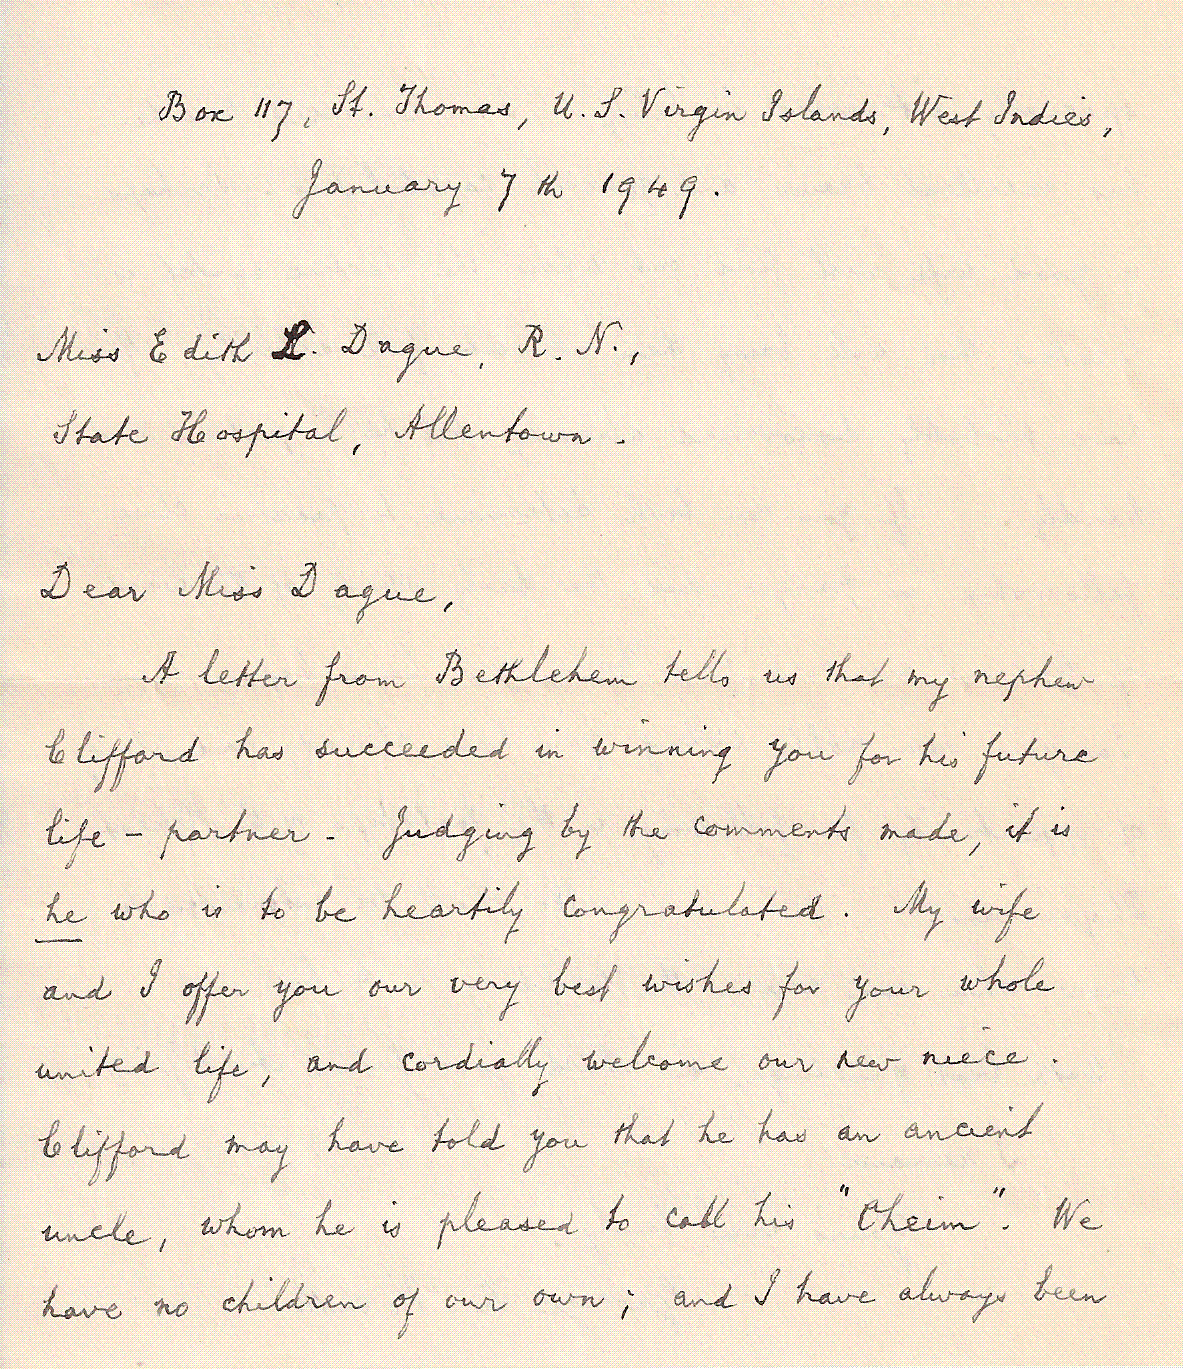 Box 117, St. Thomas, U.S. Virgin Islands, West Indies,
January 7th 1949.
Miss Edith L. Dague, R.N.,
State Hospital, Allentown.
Dear Miss Dague,
A letter from Bethlehem tells us that my nephew
Clifford has succeeded in winning you for his future
life-partner. Judging by the comments made, it is
he who is to be heartily congratulated. My wife
and I offer you our very best wishes for your whole
united life, and cordially welcome our new niece.
Clifford may have told you that he has an ancient
uncle, whom he is pleased to call his "Cheim". We
have no children of our own; and I have always been